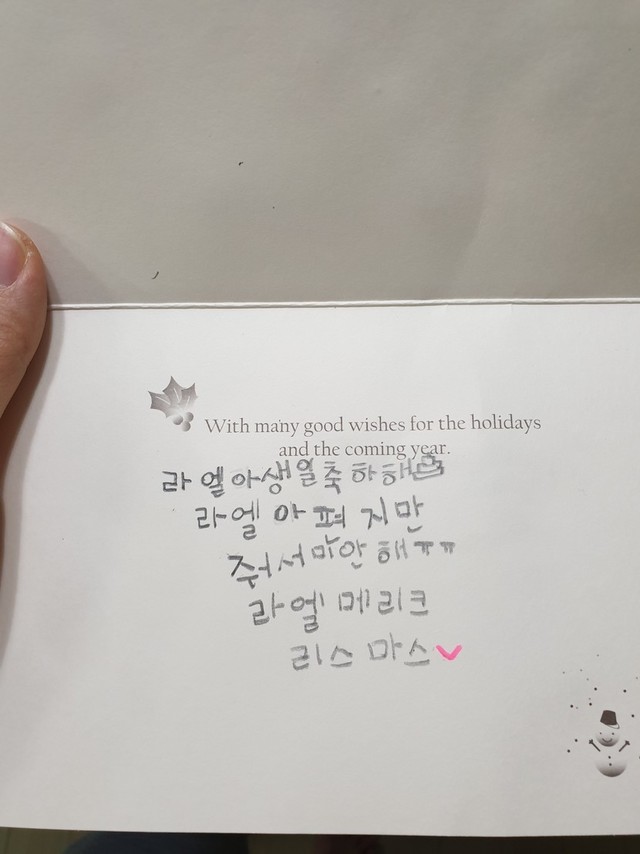 With many good wishes for the holidays
and the coming year.
라엘아생일축하해
라엘아 펴지만
줘서마안해ㅠㅠ
라엘메리크
리스마스